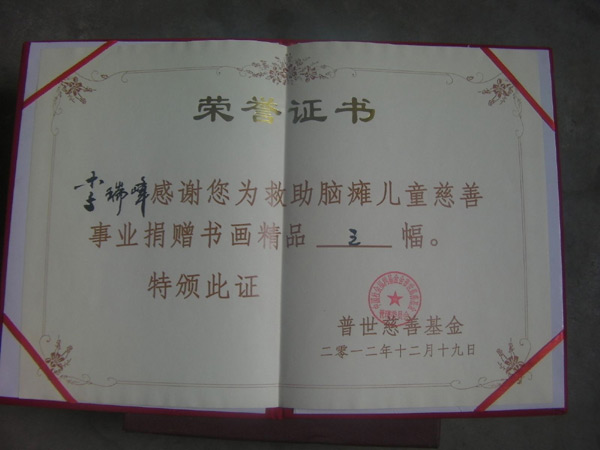 荣誉证书
李瑞峰感谢您为救助脑瘫儿童慈善
事业捐赠书画精品 三 幅。
特颁此证
普世慈善基金
二零一二年十二月十九日